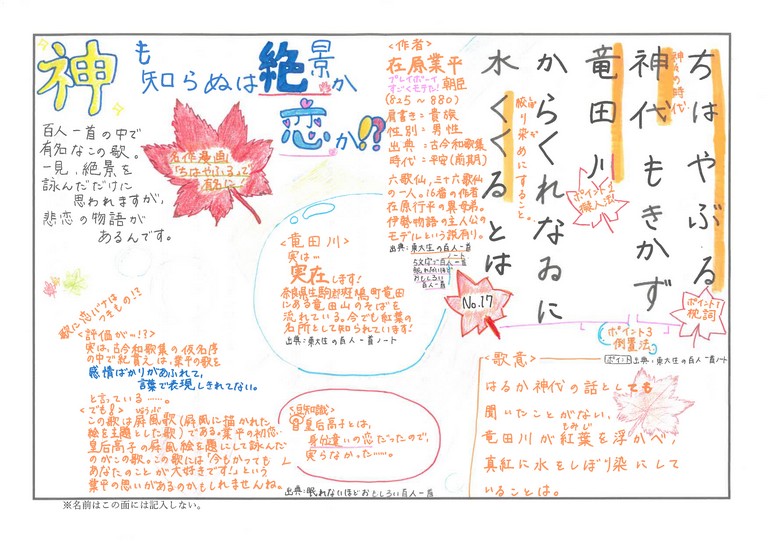 神も知らぬは絶景か
恋か!?
百人一首の中で
有名なこの歌。
一見、絶景を
詠んだだけに
思われますが、
悲恋の物語が
あるんです。
名作漫画
「ちはやふる」で
有名に!
<作者>
在原業平
プレイボーイ
すごくモテた!
朝臣
(825~880)
肩書き:貴族
性別:男性
出典:古今和歌集
時代:平安(前期)
六歌仙,三十六歌仙
の一人。16番の作者
在原行平の異母弟。
伊勢物語の主人公の
モデルという説有り。
出典:東大生の百人一首
ノート
眠れないほど
おもしろい
百人一首
ちはやぶる
神々の時代
神代もきかず
竜田川
からくれなゐに
水くくるとは
絞り染めにすること。
ポイント1
枕詞
ポイント2
擬人法
ポイント3
倒置法
ポイント 出典:東大生の百人一首ノート
No.17
<竜田川>
実は…
実在します!
奈良県生駒郡斑鳩町竜田
にある竜田山のそばを
流れている。今でも紅葉の
名所として知られています!
出典:東大生の百人一首ノート
歌に恋バナは
つきもの!?
<評価が…!?>
実は、古今和歌集の仮名序
の中で紀貫之は、業平の歌を
感情ばかりがあふれて、
言葉で表現しきれてない。
と言っている……。
<でも?>
この歌は屏風歌(屏風に描かれた
びょうぶうた
絵を主題とした歌)である。業平の初恋、
皇后高子の屏風絵を題にして詠んだ
のがこの歌。この歌には「今もかつても
あなたのことが大好きです!」という
業平の思いがあるのかもしれませんね。
<豆知識>
皇后高子とは、
身分違いの恋だったので、
実らなかった……。
出典:眠れないほどおもしろい百人一首
<歌意>
はるか神代の話としても
聞いたことがない。
もみじ
竜田川が紅葉を浮かべ、
真紅に水をしぼり染にして
いることは。
※名前はこの面には記入しない。